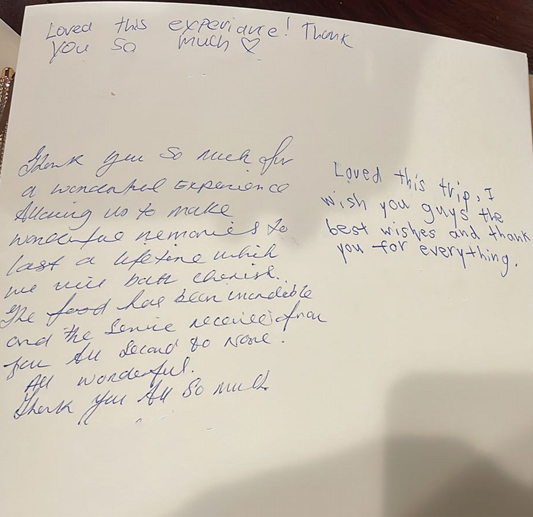 Loved this experiance! Thank
you so much ♡
Thank you so much for
a wonderful experience
Allowing us to make
wonderful memories to
last a lifetime which
we will both cherish.
The food has been incredible
and the service received from
you All second to none.
All wonderful.
Thank you All so much
Loved this trip, I
wish you guys the
best wishes and thank
you for everything.